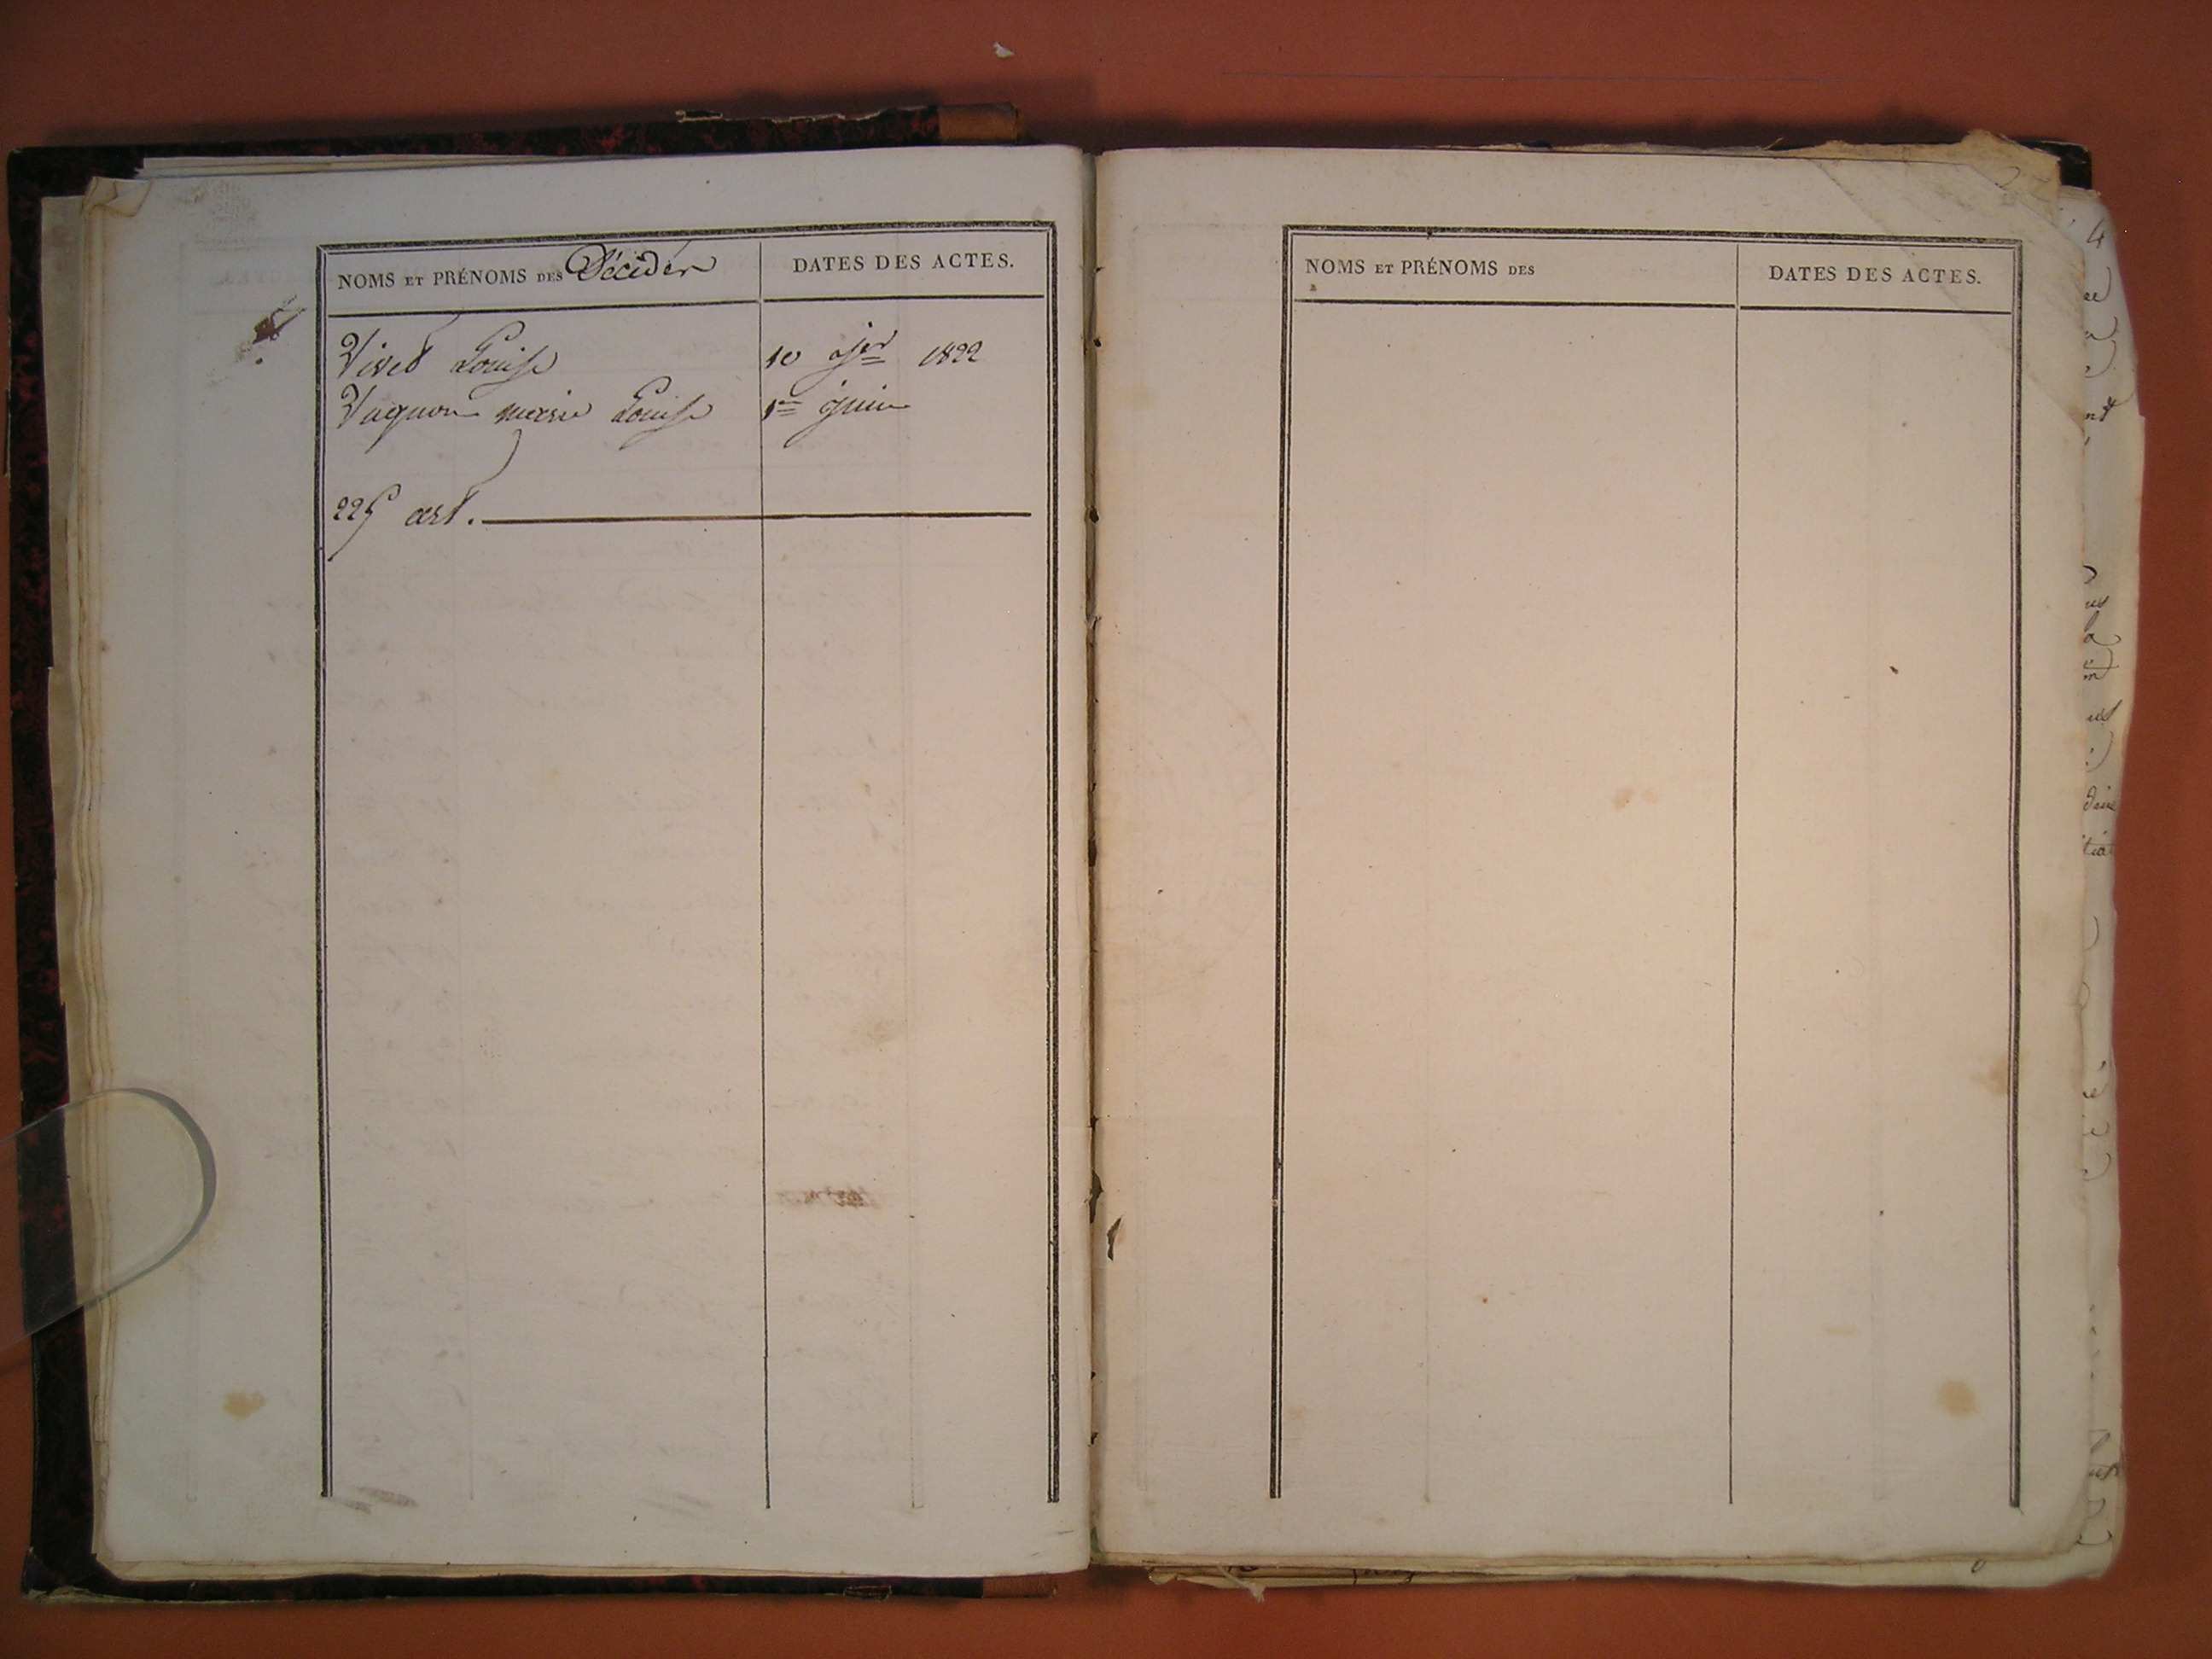 NOMS ET PRÉNOMS DES Décédés DATES DES ACTES.
Vivet Louise 10 1822
Vagnon marie Louise 1er juin
225 act.
NOMS ET PRÉNOMS DES DATES DES ACTES.